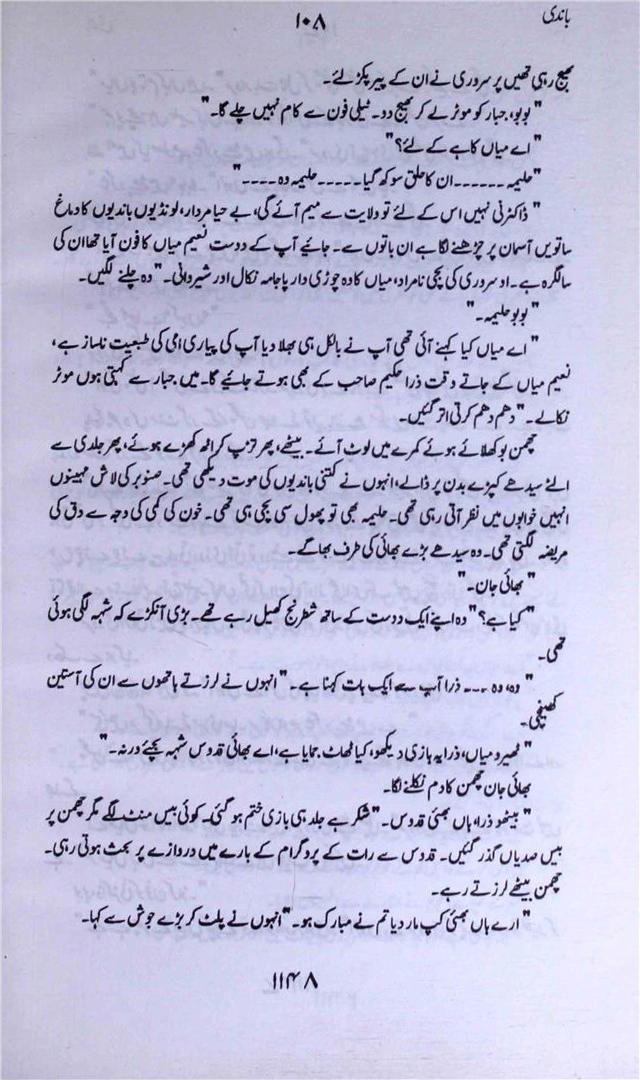 باندی
۱۰۸
بھیج رہی تھیں پر سروری نے ان کے پیر پکڑ لئے۔
"بوبو، جبار کو موٹر لے کر بھیج دو۔ ٹیلی فون سے کام نہیں چلے گا۔"
"اے میاں کاہے کے لئے؟"
"حلیمہ ۔۔۔۔۔۔ ان کا حلق سوکھ گیا۔۔۔۔۔ حلیمہ وہ ۔۔۔۔"
"ڈاکٹرنی نہیں اس کے لئے تو ولایت سے میم آئے گی، بے حیا مردار، لونڈیوں باندیوں کا دماغ
ساتویں آسمان پر چڑھنے لگا ہے ان باتوں سے۔ جائیے آپ کے دوست نعیم میاں کا فون آیا تھا ان کی
سالگرہ ہے۔ او سروری کی بچی نامراد، میاں کا وہ چوڑی دار پاجامہ نکال اور شیروانی۔" وہ چلنے لگیں۔
"بوبو حلیمہ۔"
"اے میاں کیا کہنے آئی تھی آپ نے بالکل ہی بھلا دیا آپ کی پیاری امی کی طبیعت ناساز ہے،
نعیم میاں کے جاتے وقت ذرا حکیم صاحب کے بھی ہوتے جائیے گا۔ میں جبار سے کہتی ہوں موٹر
نکالے۔" دھم دھم کرتی اتر گئیں۔
چھمن بوکھلائے ہوئے کمرے میں لوٹ آئے۔ بیٹھے، پھر تڑپ کر اٹھ کھڑے ہوئے، پھر جلدی سے
الٹے سیدھے کپڑے بدن پر ڈالے، انہوں نے کتنی باندیوں کی موت دیکھی تھی۔ صنوبر کی لاش مہینوں
انہیں خوابوں میں نظر آتی رہی تھی۔ حلیمہ بھی تو پھول سی بچی ہی تھی۔ خون کی کمی کی وجہ سے دق کی
مریضہ لگتی تھی۔ وہ سیدھے بڑے بھائی کی طرف بھاگے۔
"بھائی جان۔"
"کیا ہے؟" وہ اپنے ایک دوست کے ساتھ شطرنج کھیل رہے تھے۔ بڑی آنکڑے کہ شہہ لگی ہوئی
تھی۔
"وہ، وہ ۔۔۔ ذرا آپ سے ایک بات کہنا ہے۔" انہوں نے لرزتے ہاتھوں سے ان کی آستین
کھینچی۔
"ٹھیرو میاں، ذرا یہ بازی دیکھو، کیا ٹھاٹ جمایا ہے، اے بھائی قدوس شہہ بچئے ورنہ۔"
بھائی جان چھمن کا دم نکلنے لگا۔
"بیٹھو ذرا ہاں بھئی قدوس۔" شکر ہے جلد ہی بازی ختم ہو گئی۔ کوئی بیس منٹ لگے مگر چھمن پر
بیس صدیاں گذر گئیں۔ قدوس سے رات کے پروگرام کے بارے میں دروازے پر بحث ہوتی رہی۔
چھمن بیٹھے لرزتے رہے۔
"ارے ہاں بھئی کپ مار دیا تم نے مبارک ہو۔" انہوں نے پلٹ کر بڑے جوش سے کہا۔
۱۱۴۸